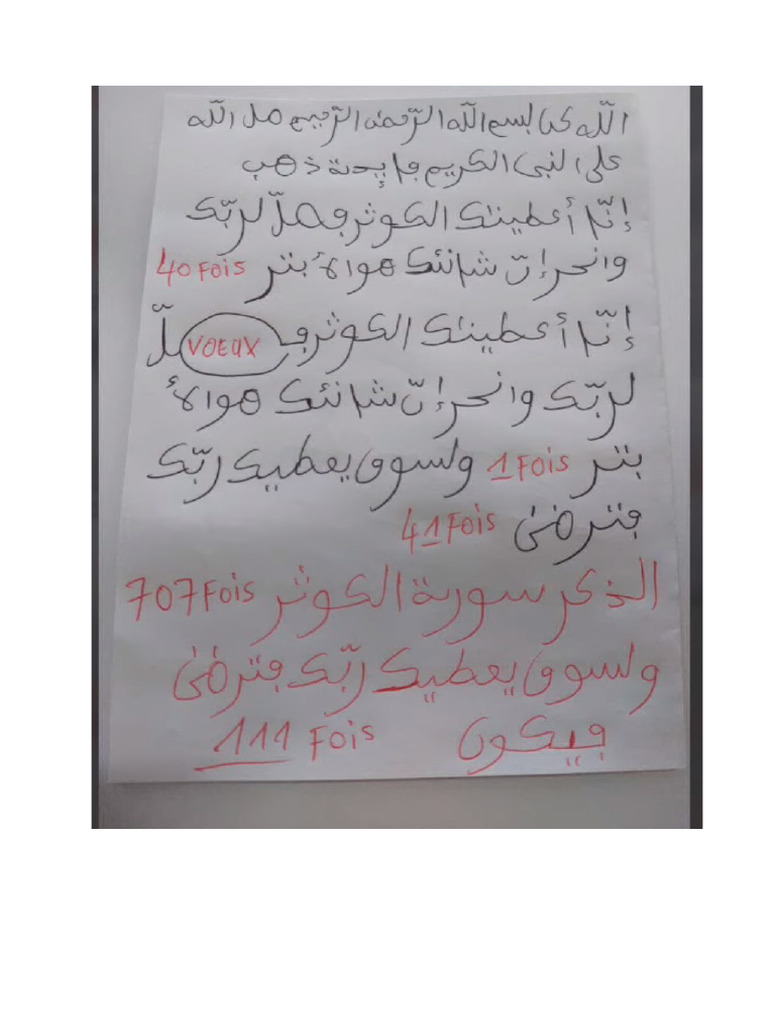 اللّه كن بسم اللّه الرّحمن الرّحيم صل اللّه
على النبى الكريم فإيحة ذهب
إنّا أعطينك الكوثر فصلّ لربّك
وانحر إنّ شانئك هوالأ بتر 40 Fois
إنّا أعطينك الكوثر ف VOEUX صلّ
لربّك وانحر إنّ شانئك هوالأ
بتر 1 Fois ولسوف يعطيك ربّك
فترضى 41 Fois
الذكر سورة الكوثر 707 Fois
ولسوف يعطيك ربّك فترضى
فيكون 111 Fois